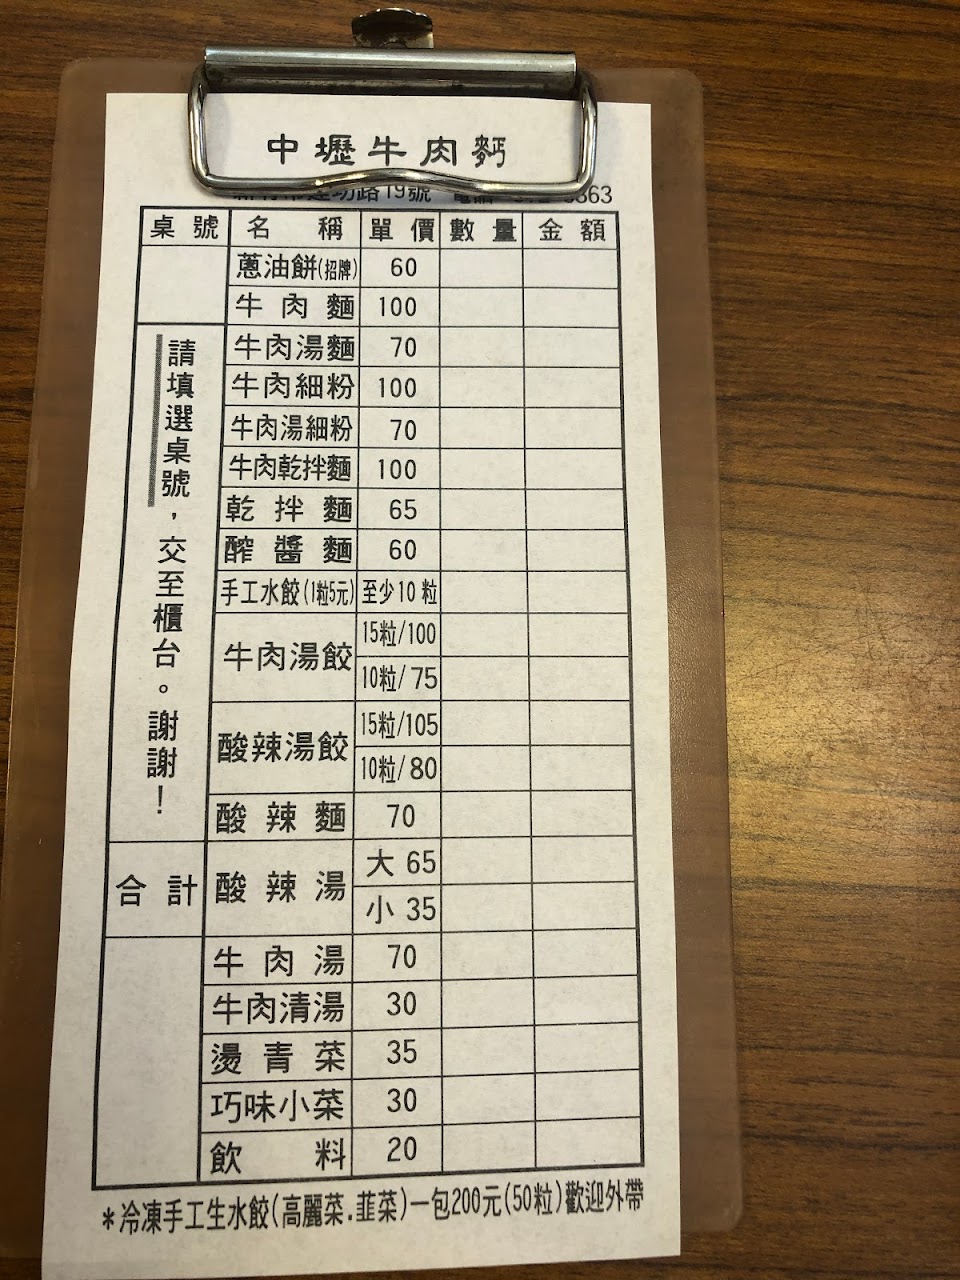 中壢牛肉麵
建功路19號 電話 3863
桌號 名稱 單價 數量 金額
蔥油餅(招牌) 60
牛肉麵 100
牛肉湯麵 70
牛肉細粉 100
牛肉湯細粉 70
牛肉乾拌麵 100
乾拌麵 65
醡醬麵 60
手工水餃(1粒5元) 至少10粒
牛肉湯餃 15粒/100
10粒/75
酸辣湯餃 15粒/105
10粒/80
酸辣麵 70
酸辣湯 大 65
小 35
牛肉湯 70
牛肉清湯 30
燙青菜 35
巧味小菜 30
飲料 20
請填選桌號，交至櫃台。謝謝！
合計
*冷凍手工生水餃(高麗菜.韮菜)一包200元(50粒)歡迎外帶